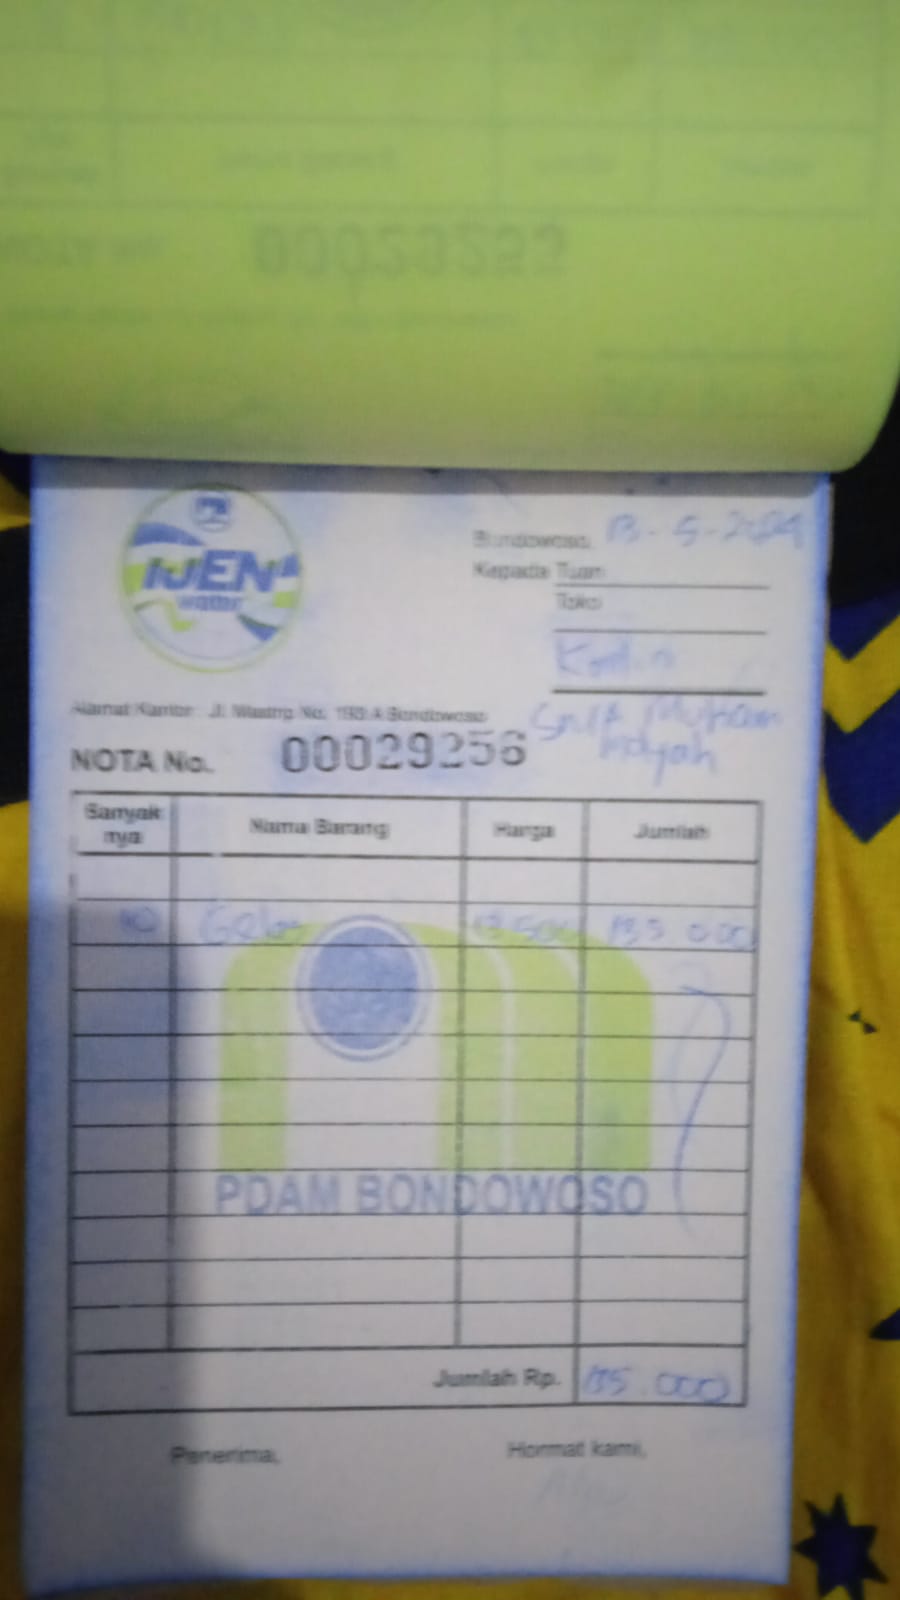 00029253
IJEN
water
Bondowoso, 13-5-2024
Kepada Tuan
Toko
Kantin
SMA Muham
adiyah
Alamat Kantor : Jl. Mastrip No. 193 A Bondowoso
NOTA No. 00029256
Banyak nya Nama Barang Harga Jumlah
10 Gelas 13.500 135.000
PDAM BONDOWOSO
Jumlah Rp. 135.000
Penerima, Hormat kami,